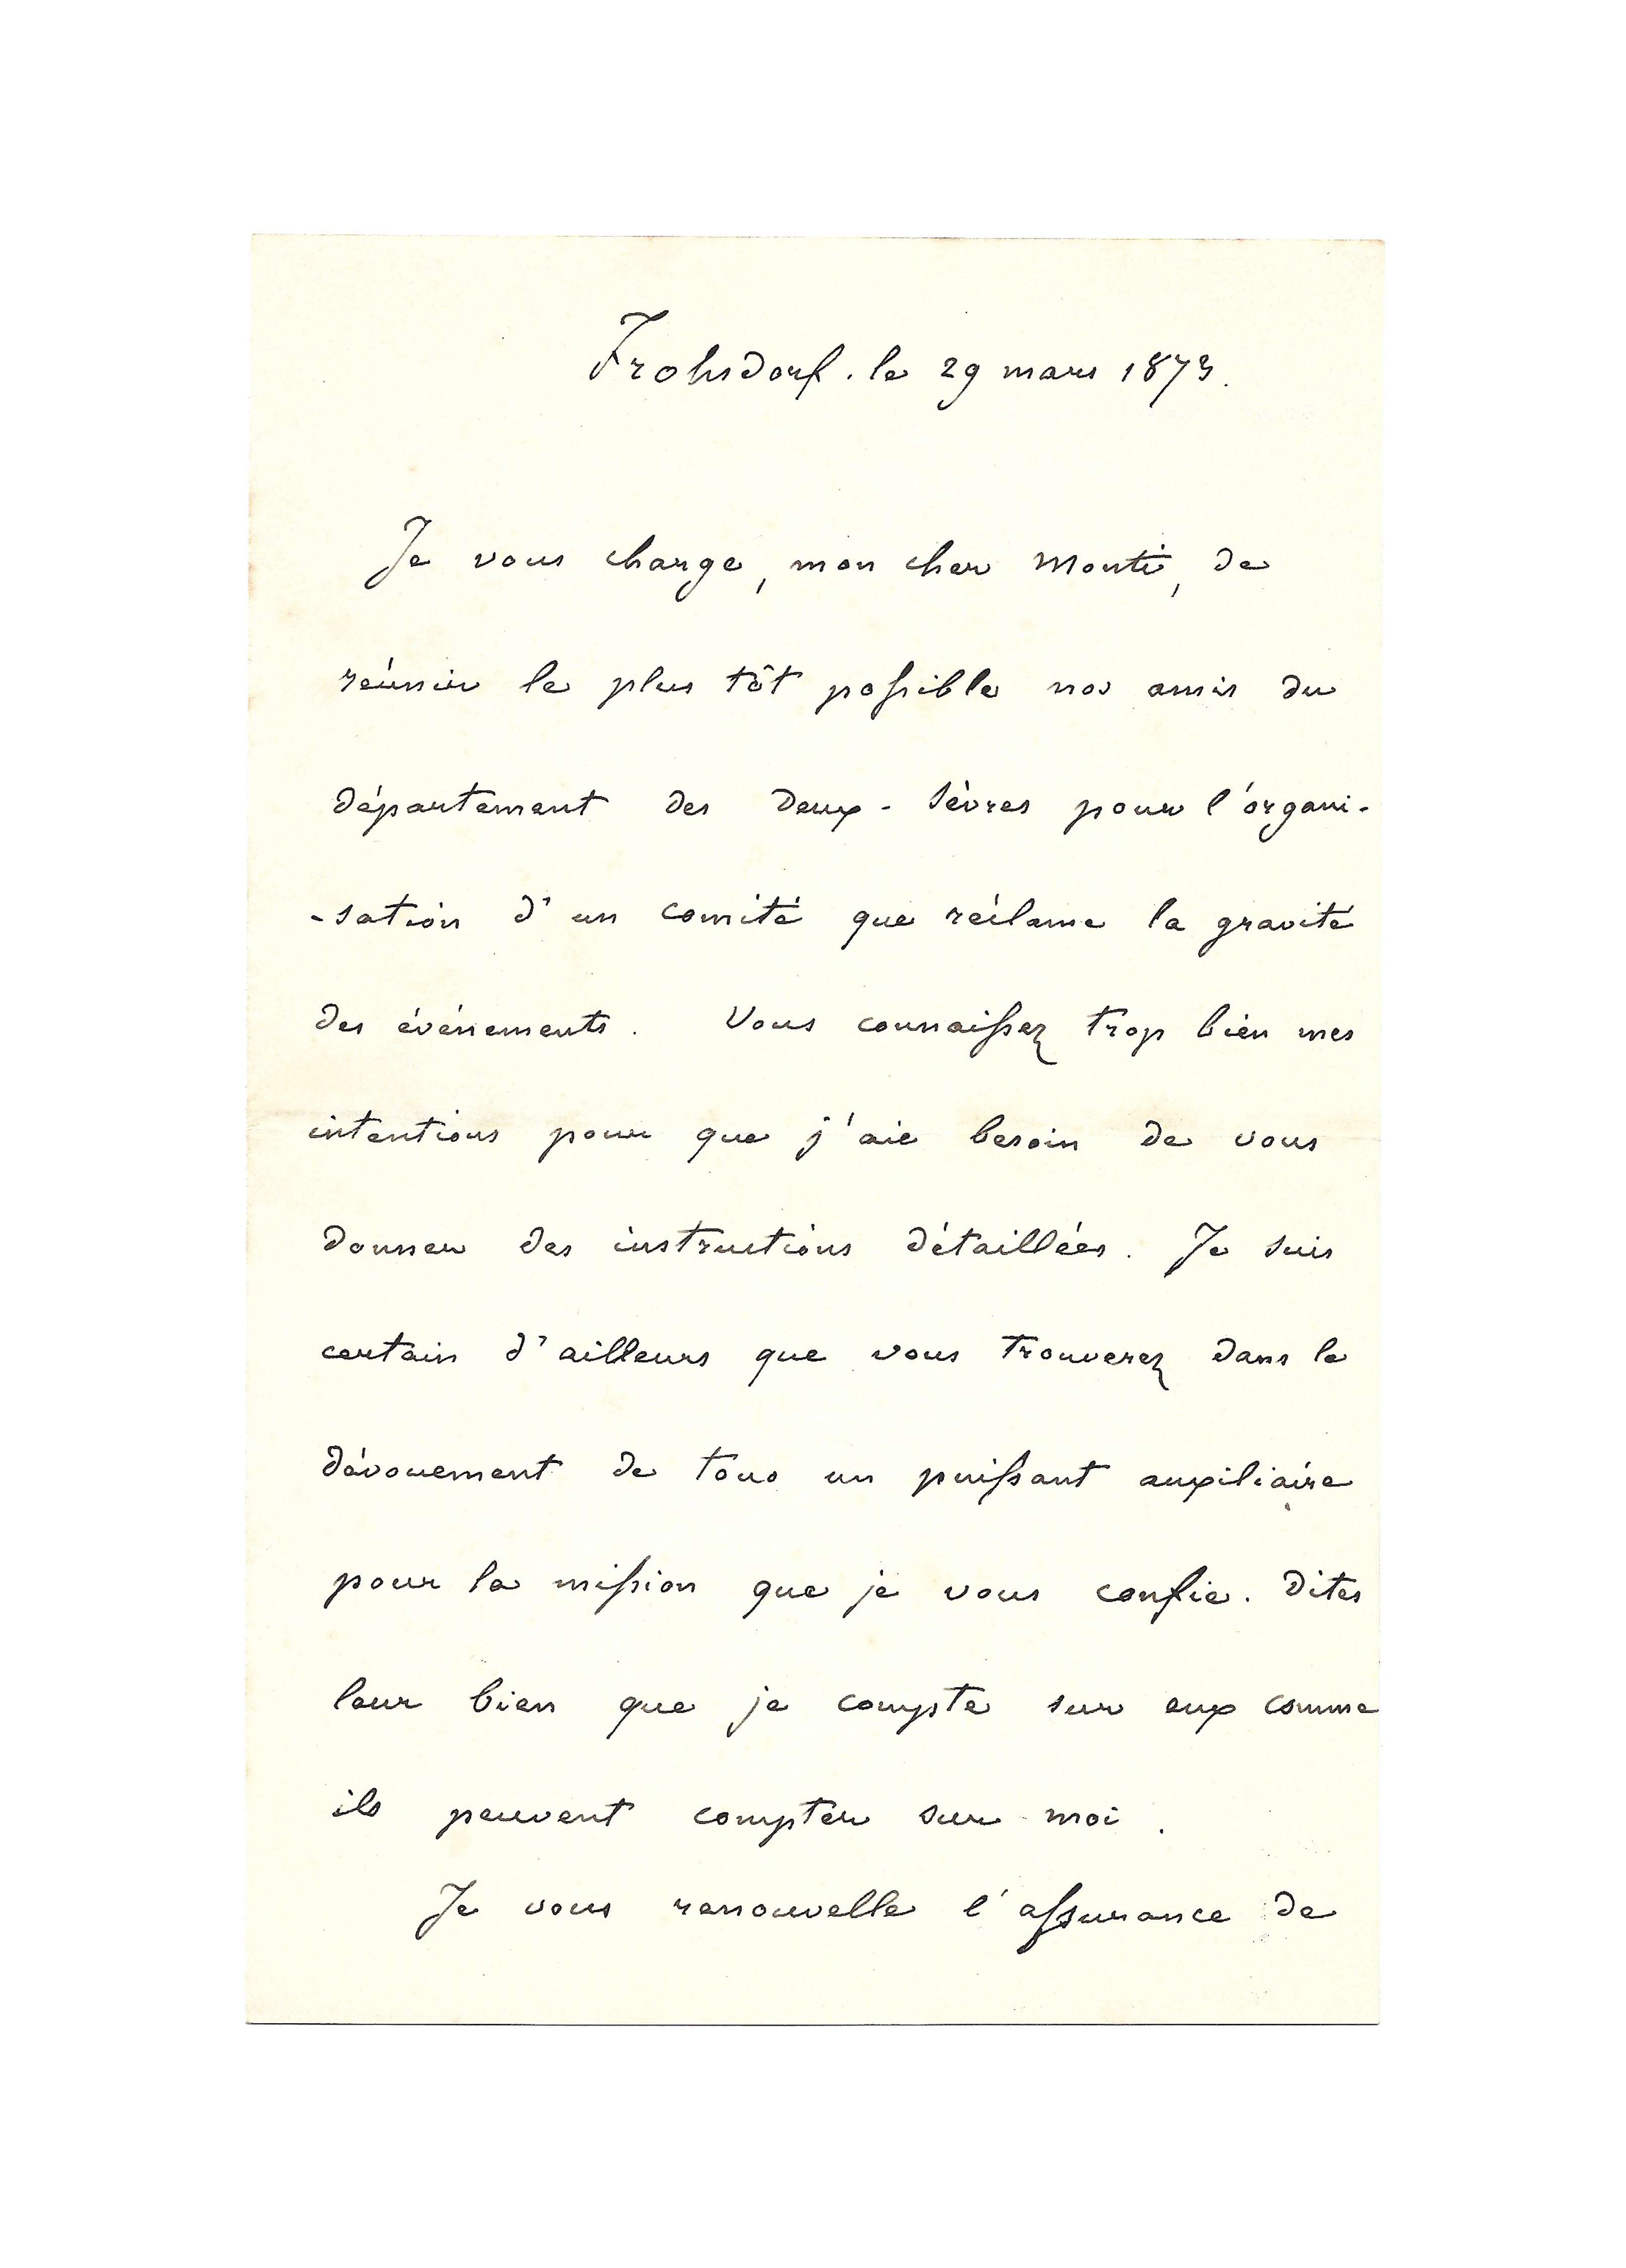 Frohsdorf. le 29 mars 1873.
Je vous charge, mon cher Monti, de
réunir le plus tôt possible nos amis du
département des Deux-Sèvres pour l'organi-
-sation d'un comité que réclame la gravité
des événements. Vous connaissez trop bien mes
intentions pour que j'aie besoin de vous
donner des instructions détaillées. Je suis
certain d'ailleurs que vous trouverez dans le
dévouement de tous un puissant auxiliaire
pour la mission que je vous confie. Dites
leur bien que je compte sur eux comme
ils peuvent compter sur moi.
Je vous renouvelle l'assurance de